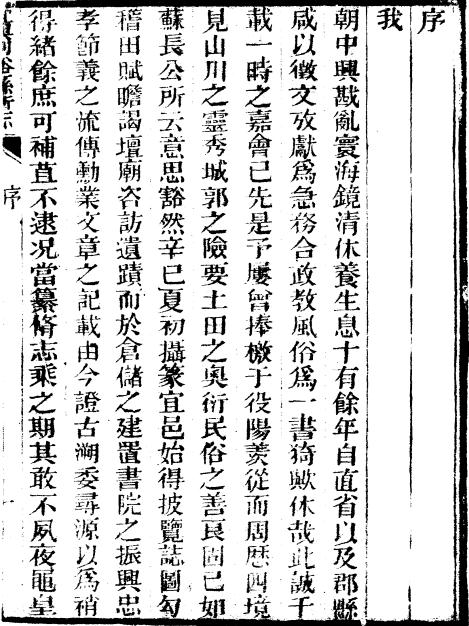 序
我
朝中興戡亂寰海鏡清休養生息十有餘年自直省以及郡縣
咸以徵文攷獻爲急務合政教風俗爲一書猗歟休哉此誠千
載一時之嘉會已先是予屢曾捧檄于役陽羨從而周歷四境
見山川之靈秀城郭之險要土田之奧衍民俗之善良固已如
蘇長公所云意思豁然辛巳夏初攝篆宜邑始得披覽誌圖勾
稽田賦瞻謁壇廟咨訪遺蹟而於倉儲之建置書院之振興忠
孝節義之流傳勳業文章之記載由今證古溯委尋源以爲稍
得緒餘庶可補苴不逮况當纂脩志乘之期其敢不夙夜黽皇
序